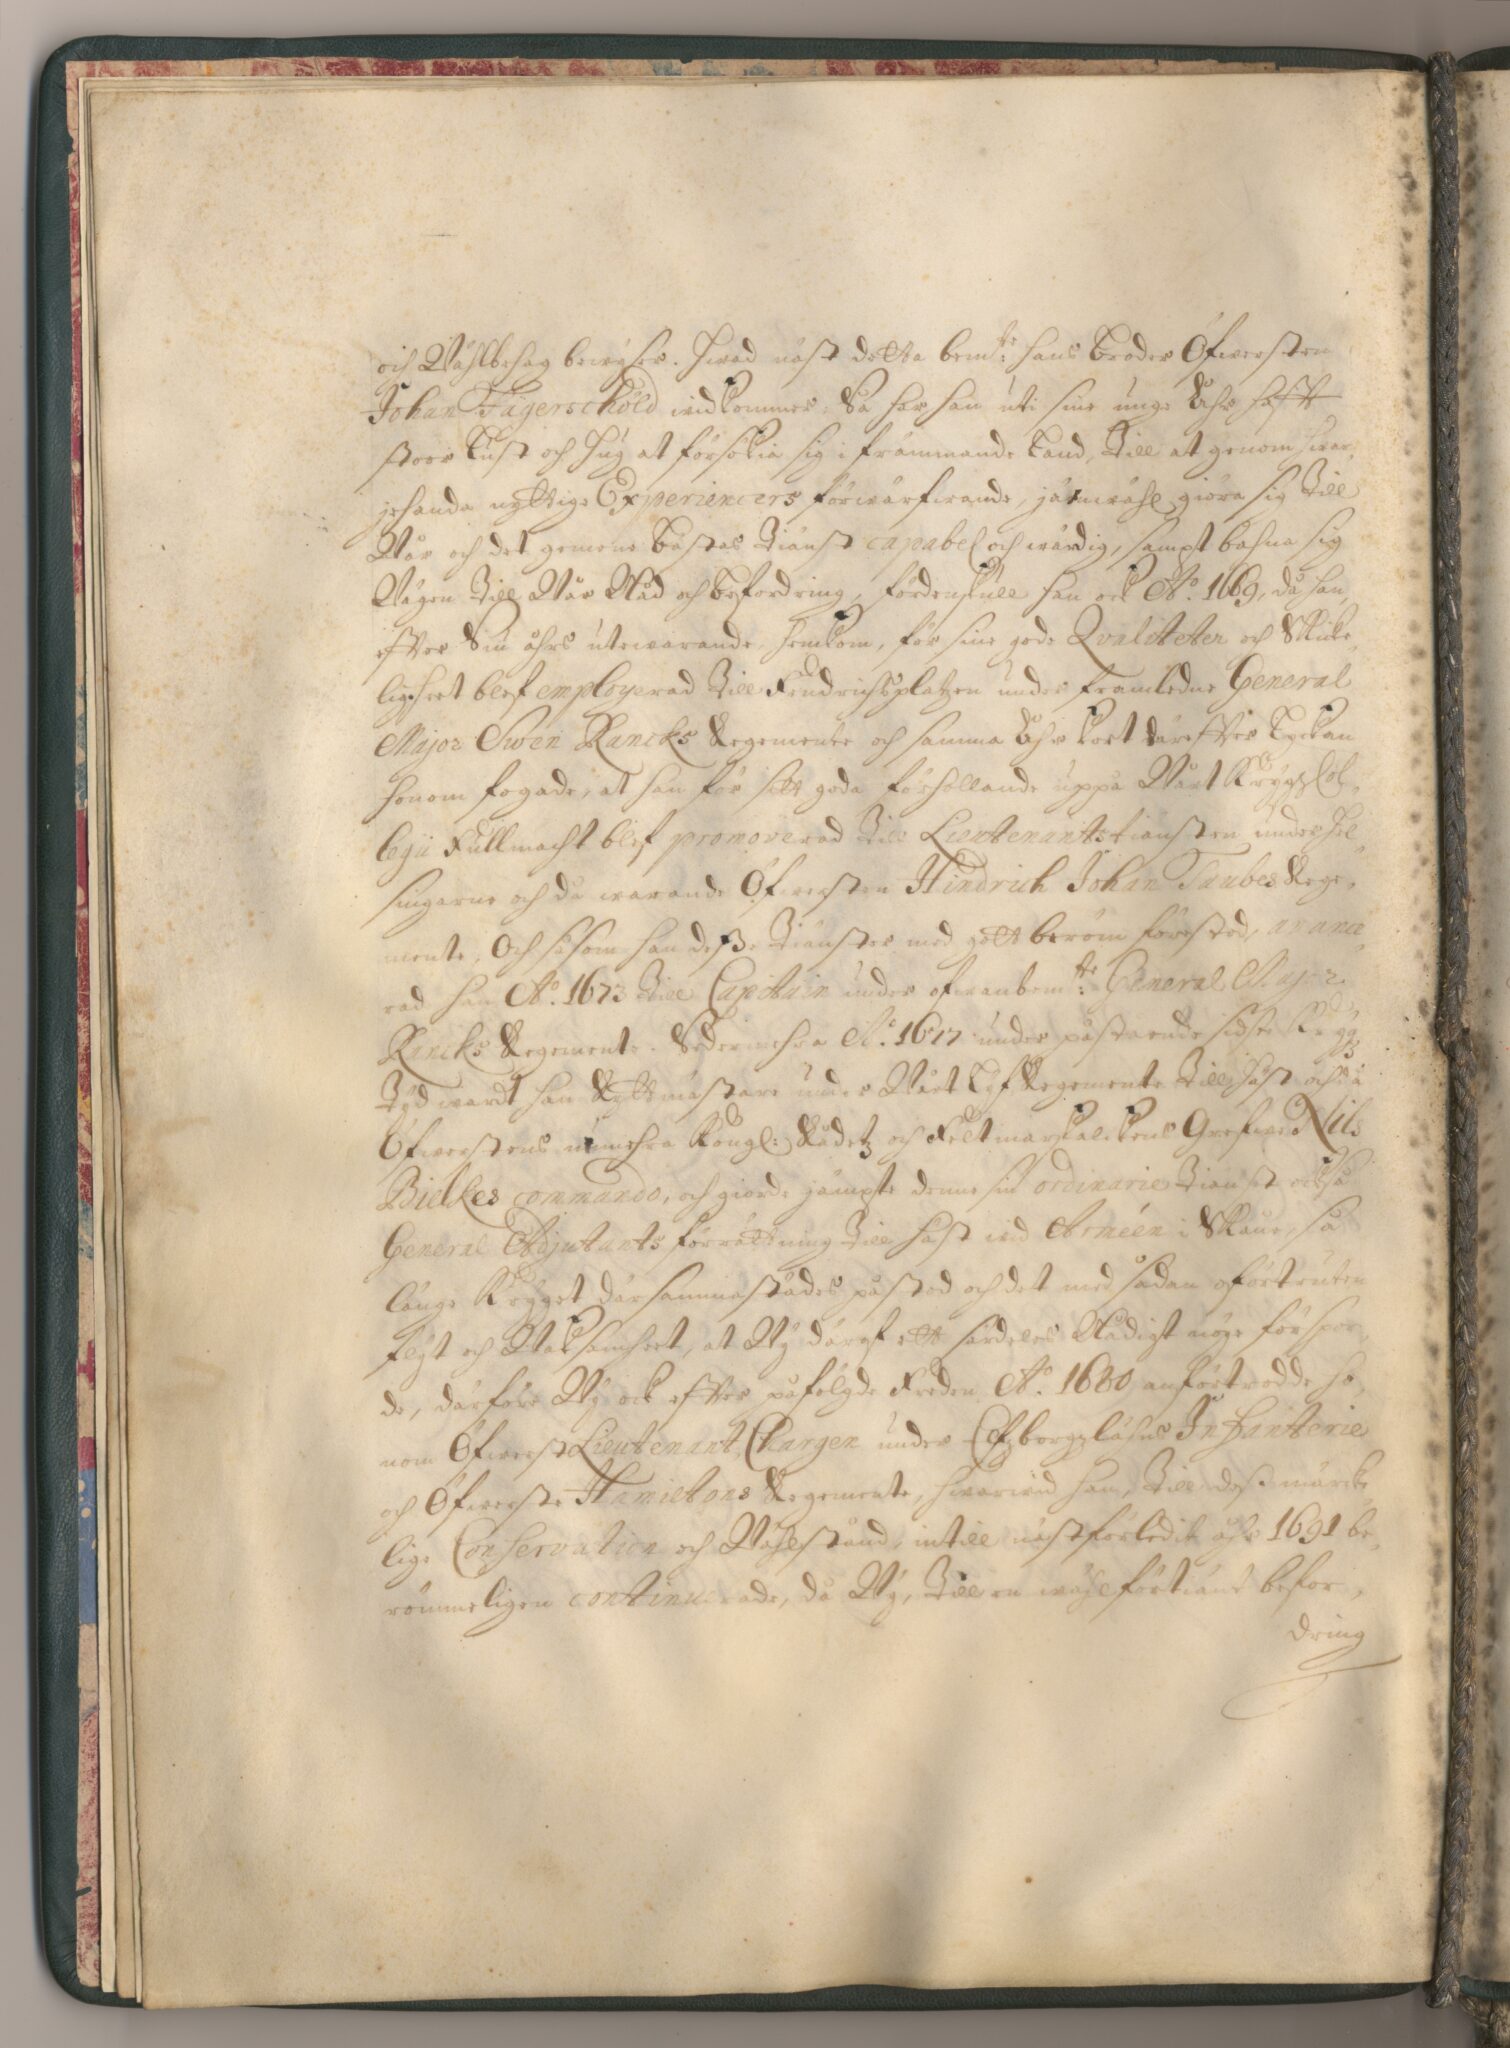 och Wählbehag bewyser. Hwad näst detta bem:te hans Broder Öfwersten
Johan Fägerschöld widkommer, Så har han uti sine unge Åhr hafft
stoor Lust och Hug at försökia sig i främmande Land, Till at genom hwar,
jehanda nyttige Experiencers förwärfwande, jämwähl giöra sig Till
Wår och det gemene Bästas Tiänst capabel och wärdig, sampt bahna sig
Wägen Till Wår Nåd och Befordring, fördenskull han ock A:o 1669, då han,
effter Siu åhrs utewarande, hemkom, för sine gode Qualiteter och Skicke,
ligheet blef employerad Till Fendrichsplatzen under framledne General
Major Swen Rancks Regemente och samma Åhr kort däreffter Lyckan
honom fogade, at han för sitt goda förhållande uppå Wårt Krygz Col,
legii Fullmacht blef promoverad Till Lieutenants tiänsten under Hel,
singarne och då warande Öfwersten Hindrich Johan Taubes Rege,
mente, Och såsom han desse Tiänster med gott beröm förestod, avance,
rad han A:o 1673 Till Capitain under ofwanbem:te General Major
Rancks Regemente. Sedermehra A:o 1677 under påstående sidste Krygz
Tyd wardt han Ryttmästare under Wårt Lyf Regemente Till häst och då
Öfwerstens nunmehra Kongl: Rådetz och Feltmarskalckens Grefwe Nils
Bielkes commando, och giorde jämpte denne sin ordinarie Tiänst också
General Adjutants förrättning Till häst wid Arméen i Skåne, så
länge Kryget därsammastädes påstod och det med sådan oförtruten
flyt och Waksamheet, at Wy däraf ett särdeles Nådigt nöye förspor,
de, därföre Wy ock effter påfölgde Freden A:o 1680 anförtrodde ho,
nom Öfwerst Lieutenant Chargen under Elfzborgz Lähns Infanterie
och Öfwerste Hamiltons Regemente, hwarwid han, Till dess märcke,
lige Conservation och Wählstånd, intill nästförledit åhr 1691 be,
römmeligen continuerade, då Wy, Till en wähl förtiänt befor,
dring